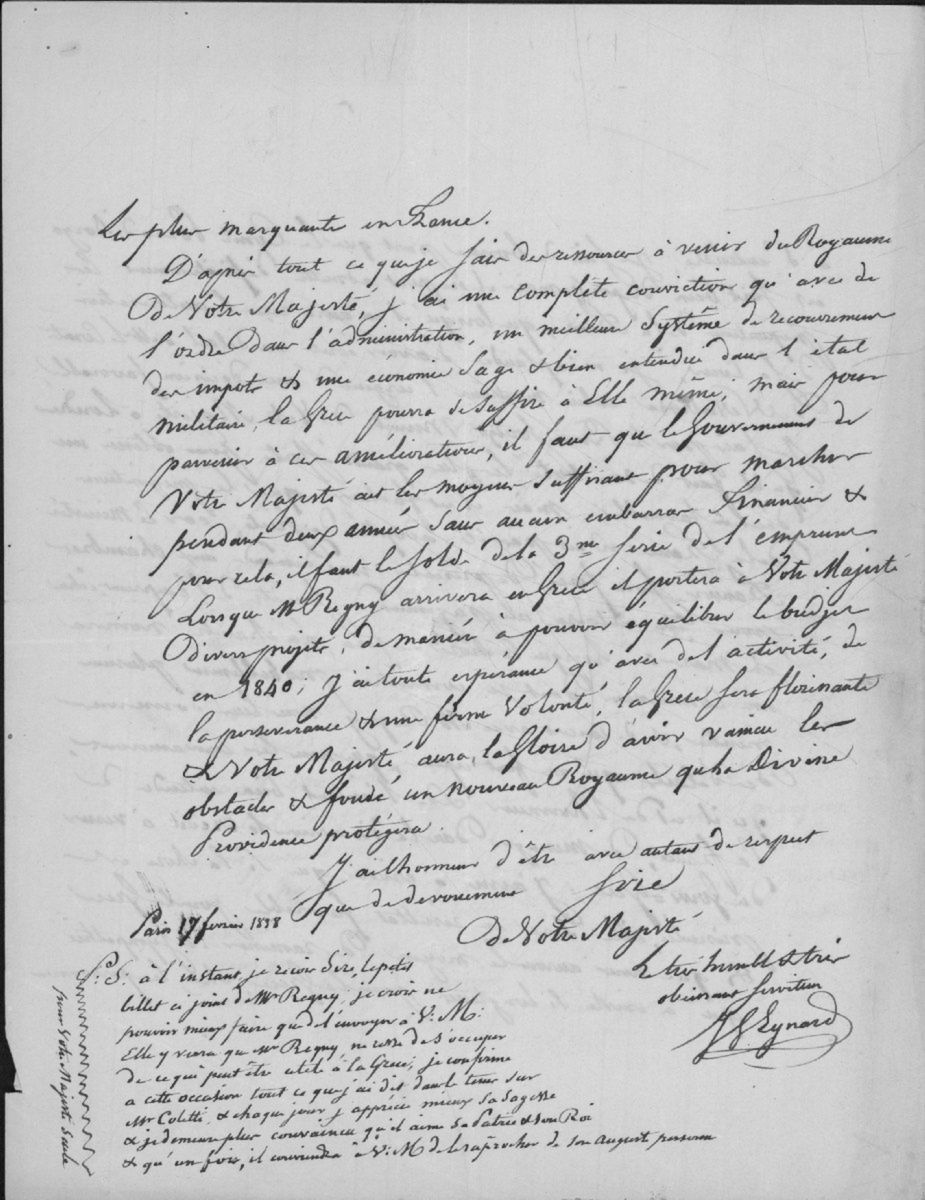 les plus marquants en France.
D'après tout ce que je sais des ressources à venir du Royaume
de Votre Majesté, j'ai une complète conviction qu'avec de
l'ordre dans l'administration, un meilleur Système de recouvrement
des impots & une économie sage & bien entendue dans l'état
militaire, la Grèce pourra se suffire à Elle même; mais pour
parvenir à ces améliorations, il faut que le Gouvernement de
Votre Majesté ait les moyens suffisant pour marcher
pendant deux années sans aucun embarras financier &
pour cela, il faut le solde de la 3me Serie de l'emprunt
Lorsque Mr Regny arrivera en Grèce il portera à Votre Majesté
Divers projets, de manière à pouvoir équilibrer le budjet
en 1840; j'ai toute espérance qu'avec de l'activité, de
la perseverance & une ferme Volonté, la Grèce sera florissante
& Votre Majesté aura la Gloire d'avoir vaincu les
obstacles & fondé un nouveau Royaume que la Divine
Providence protégera
J'ai l'honneur d'être avec autant de respect
que de devouement Sire
De Votre Majesté
Le tres humble & très
obéissant Serviteur
J G Eynard
Paris 17 fevrier 1838
P.S. à l'instant je reçois Sire, le petit
billet ci joint de Mr Regny; je crois ne
pouvoir mieux faire que de l'envoyer à V. M.
Elle y verra que Mr Regny ne cesse de s'occuper
de ce qui peut être utile à la Grèce; je confirme
a cette occasion tout ce que j'ai dit dans le tems sur
Mr Coletti, & chaque jour j'apprécie mieux sa sagesse
& je demeure plus convaincu qu'il aime sa Patrie & son Roi
& qu'un fois, il conviendra à V. M de le raprocher de son august personne
pour Votre Majesté Seule